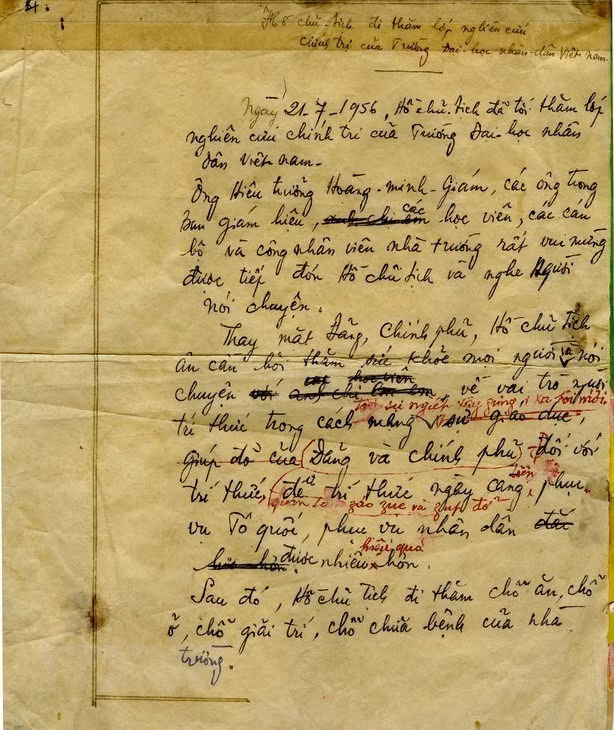 Hồ chủ-tịch đi thăm lớp nghiên cứu
chính trị của Trường Đại-học nhân-dân Việt-nam.
Ngày 21-7-1956, Hồ chủ-tịch đã tới thăm lớp
nghiên cứu chính trị của Trường Đại-học nhân
dân Việt-nam.
Ông Hiệu trưởng Hoàng-minh-Giám, các ông trong
ban giám hiệu, các học viên, các cán
bộ và công nhân viên nhà trường rất vui mừng
được tiếp đón Hồ chủ tịch và nghe Người
nói chuyện.
Thay mặt Đảng, Chính phủ, Hồ chủ tịch
ân cần hỏi thăm sức khỏe mọi người và nói
học viên
chuyện với anh chị em về vai trò người
tới sự nghiệp xây dựng xã hội mới
trí thức trong cách mạng, sự giáo dục,
giúp đỡ của Đảng và chính phủ đối với
trí thức, để trí thức ngày càng phục
quan tâm giáo dục và giúp đỡ
vụ Tổ quốc, phục vụ nhân dân
hiệu quả
được nhiều hơn.
Sau đó, Hồ chủ tịch đi thăm chỗ ăn, chỗ
ở, chỗ giải trí, chỗ chữa bệnh của nhà
trường.